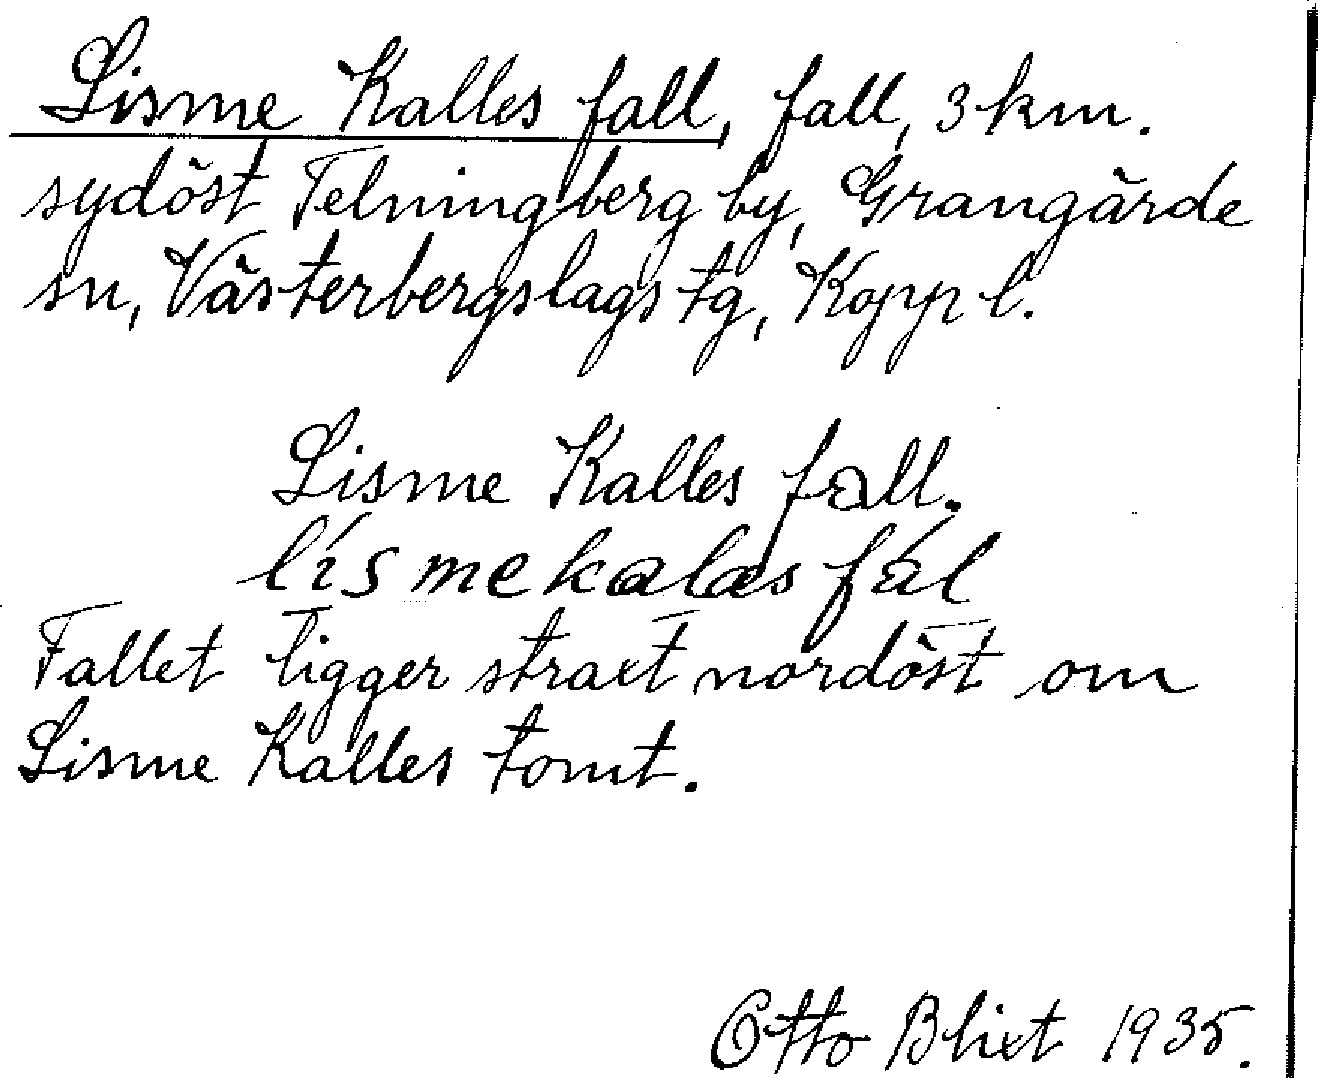 Lisme Kalles fall, fall, 3 km.
sydöst Telningberg by, Grangärde
sn, Västerbergslags tg, Kopp l.
Lisme Kalles fall.
lísmekalas fál
Fallet ligger straxt nordöst om
Lisme Kalles tomt.
Otto Blixt 1935.